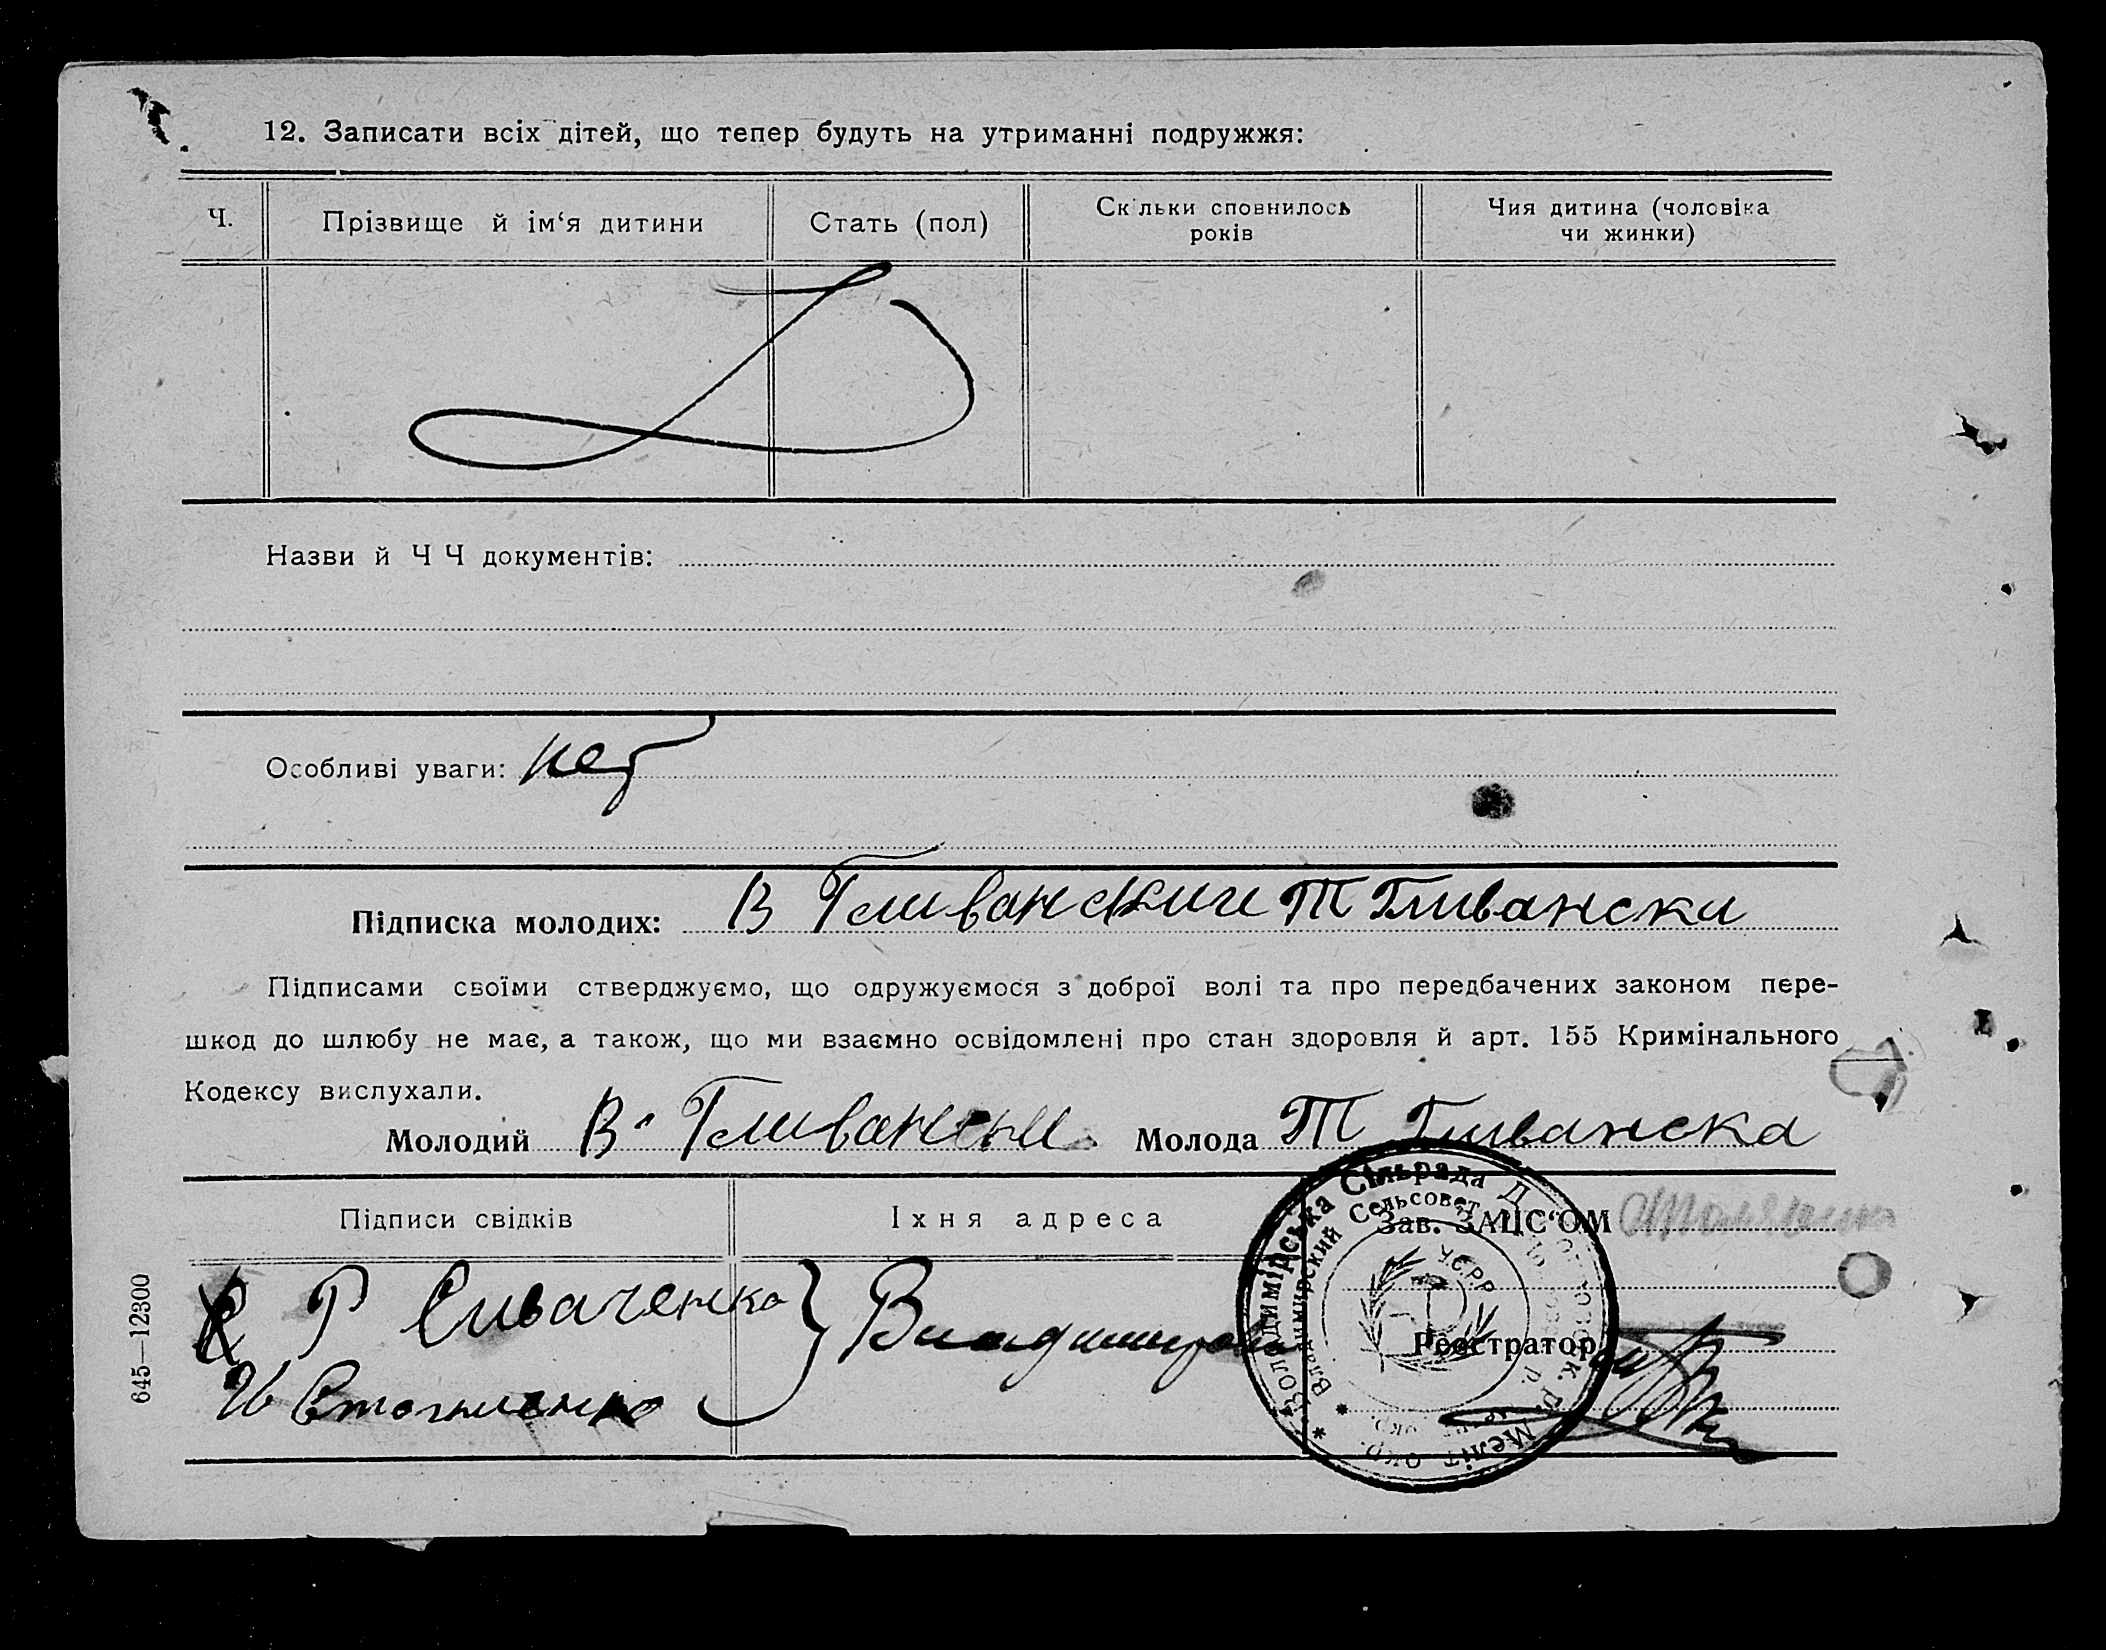 12. Записати всіх дітей, що тепер будуть на утриманні подружжя:
Ч. Прізвище й ім‘я дитини Стать (пол) Скільки сповнилось років Чия дитина (чоловіка чи жинки)
Назви й Ч Ч документів:
Особливі уваги: нет
Підписка молодих: В Гливанский Т Гливански
Підписами своїми стверджуємо, що одружуємося з доброї волі та про передбачених законом пере-
шкод до шлюбу не має, а також, що ми взаємно освідомлені про стан здоровля й арт. 155 Кримінального
Кодексу вислухали.
Молодий В. Гливански Молода Т Гливанска
Підписи свідків Їхня адреса Зав. ЗАЦС‘ОМ
Р Сиваченко
Реєстратор
Володимірська Сільрада
Владимирский Сельсовет
УСРР
Меліт окр.
645—12300